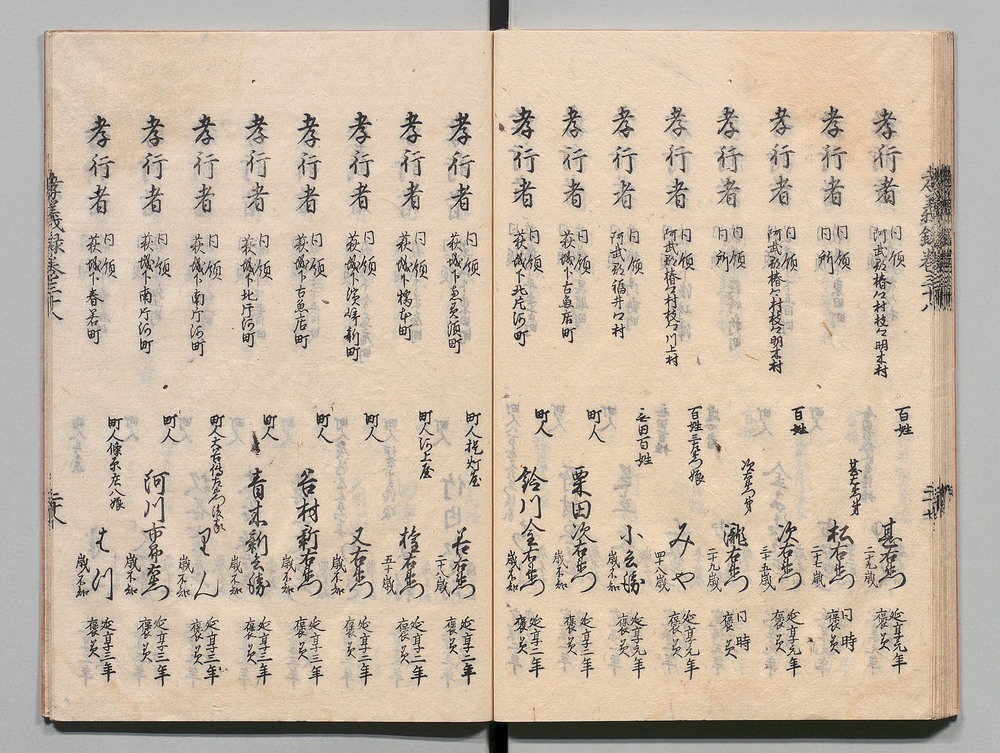 孝行者 同領 阿武郡椿郷村枝郷明木村 百姓 甚右衛門 二十九歳 延享元年 褒美
孝行者 同領 同所 甚右衛門弟 松右衛門 二十七歳 同時 褒美
孝行者 同領 阿武郡椿郷村枝郷明木村 百姓 次右衛門 三十五歳 延享元年 褒美
孝行者 同領 同所 次右衛門弟 瀧右衛門 二十九歳 同時 褒美
孝行者 同領 阿武郡椿郷村枝郷川上村 百姓 みや 四十八歳 延享元年 褒美
孝行者 同領 阿武郡福井郷村 百姓 小 歳不知 延享元年 褒美
孝行者 同領 萩城下古魚店町 町人 粟田次右衛門 歳不知 延享二年 褒美
孝行者 同領 萩城下北片河町 町人 鈴川金右衛門 歳不知 延享二年 褒美
孝行者 同領 萩城下恵美須町 町人提灯屋 若右衛門 二十八歳 延享二年 褒美
孝行者 同領 萩城下橋本町 町人河上屋 権右衛門 五十歳 延享二年 褒美
孝行者 同領 萩城下濱崎新町 町人 又右衛門 歳不知 延享二年 褒美
孝行者 同領 萩城下古魚店町 町人 新右衛門 歳不知 延享三年 褒美
孝行者 同領 萩城下北片河町 町人 青木新 歳不知 延享三年 褒美
孝行者 同領 萩城下南片河町 町人 りん 歳不知 延享三年 褒美
孝行者 同領 萩城下南片河町 町人 阿川市郎右衛門 歳不知 延享三年 褒美
孝行者 同領 萩城下春若町 町人 庄八娘 歳不知 延享三年 褒美
孝義録巻三十八